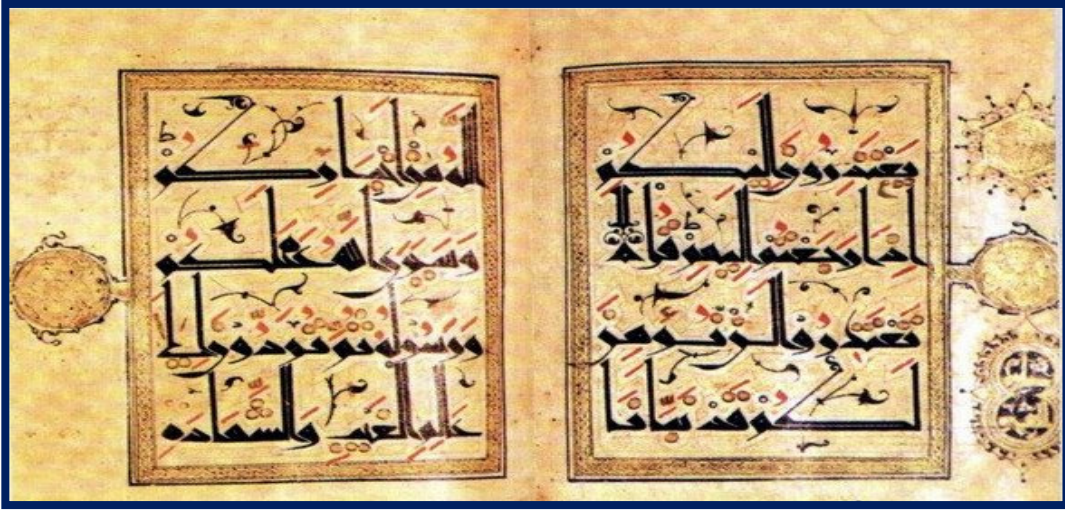 يَعْتَذِرُونَ إِلَيْكُمْ
إِذَا رَجَعْتُمْ إِلَيْهِمْ قُل لَّا
تَعْتَذِرُوا لَن نُّؤْمِنَ
لَكُمْ قَدْ نَبَّأَنَا
اللَّهُ مِنْ أَخْبَارِكُمْ
وَسَيَرَى اللَّهُ عَمَلَكُمْ
وَرَسُولُهُ ثُمَّ تُرَدُّونَ إِلَى
عَلِمِ الْغَيْبِ وَالشَّهَادَةِ